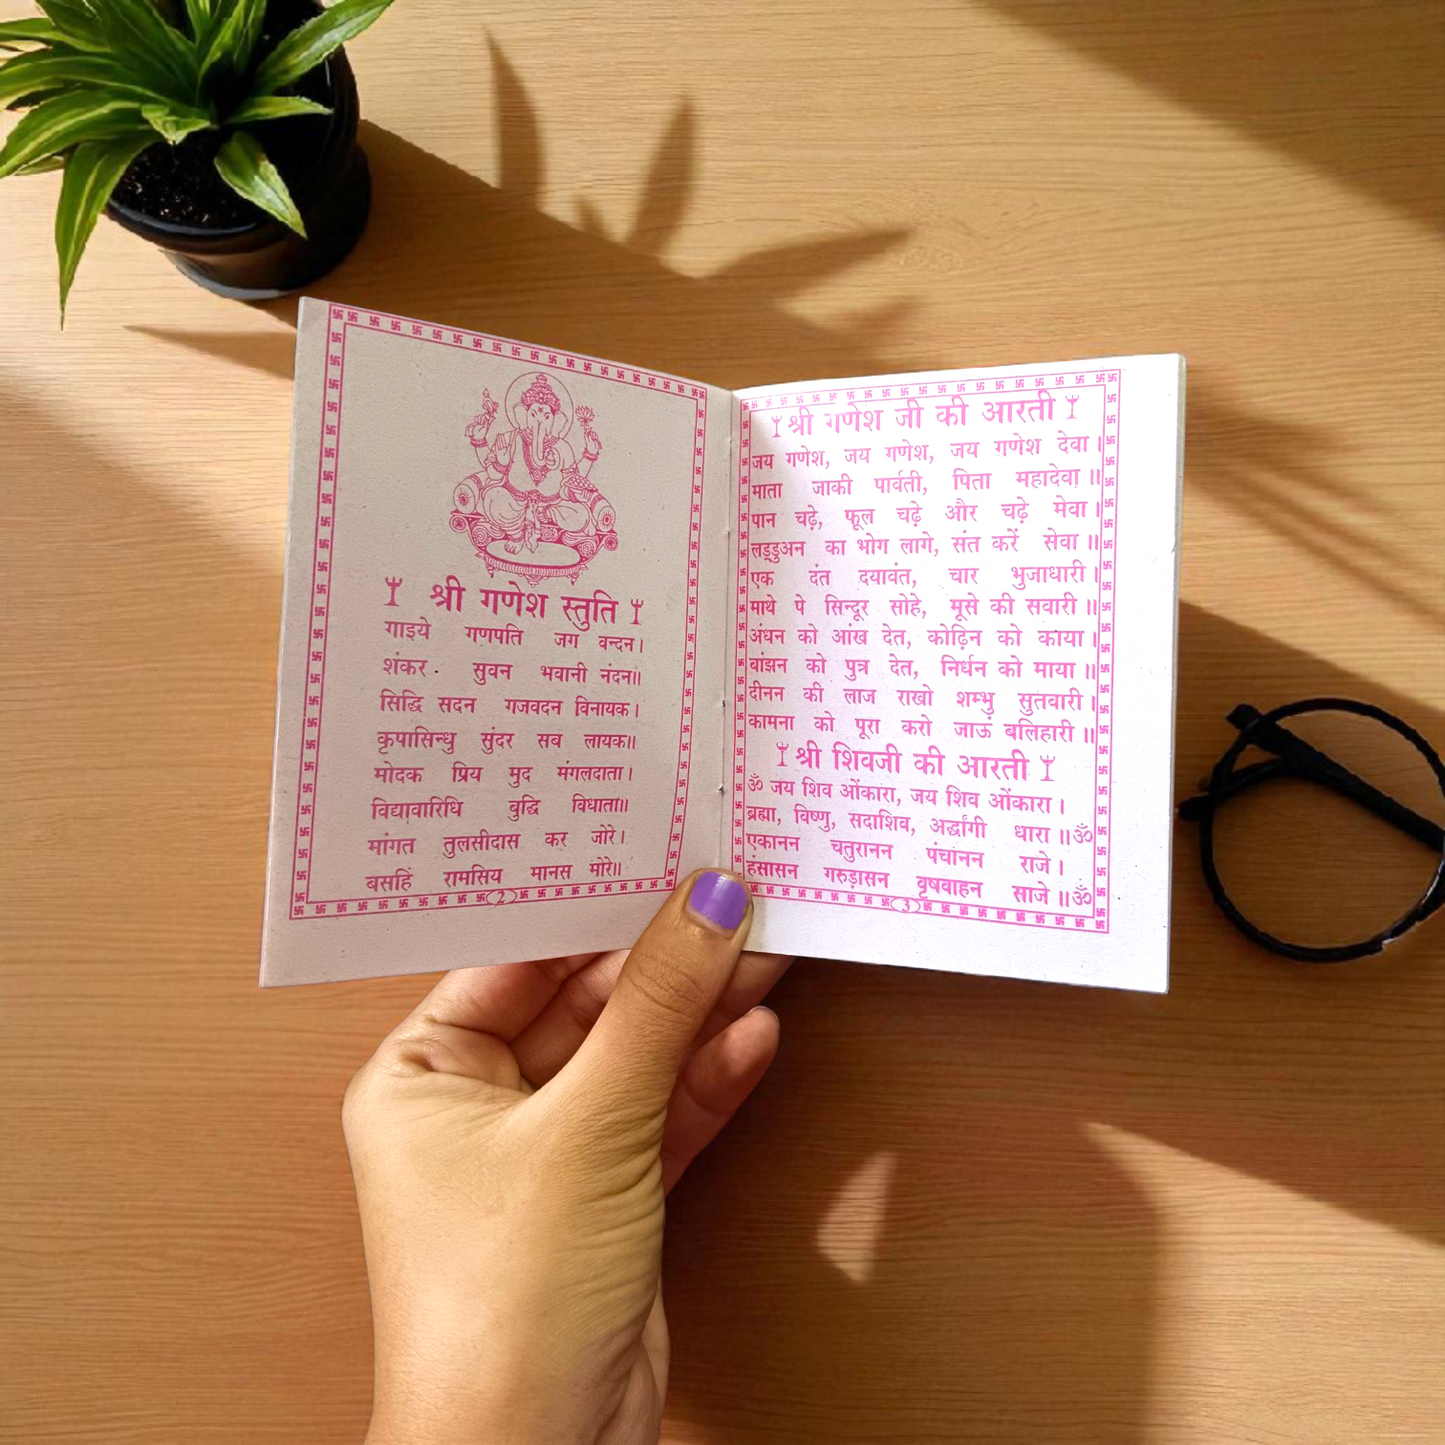 श्री गणेश स्तुति
गाइये गणपति जग वन्दन।
शंकर सुवन भवानी नंदन॥
सिद्धि सदन गजवदन विनायक।
कृपासिन्धु सुंदर सब लायक॥
मोदक प्रिय मुद मंगलदाता।
विद्यावारिधि बुद्धि विधाता॥
मांगत तुलसीदास कर जोरे।
बसहिं रामसिय मानस मोरे॥
2
श्री गणेश जी की आरती
जय गणेश, जय गणेश, जय गणेश देवा।
माता जाकी पार्वती, पिता महादेवा॥
पान चढ़े, फूल चढ़े और चढ़े मेवा।
लड्डुअन का भोग लागे, संत करें सेवा॥
एक दंत दयावंत, चार भुजाधारी।
माथे पे सिन्दूर सोहे, मूसे की सवारी॥
अंधन को आंख देत, कोढ़िन को काया।
बांझन को पुत्र देत, निर्धन को माया॥
दीनन की लाज राखो शम्भु सुतवारी।
कामना को पूरा करो जाऊं बलिहारी॥
श्री शिवजी की आरती
ॐ जय शिव ओंकारा, जय शिव ओंकारा।
ब्रह्मा, विष्णु, सदाशिव, अर्द्धांगी धारा॥ॐ
एकानन चतुरानन पंचानन राजे।
हंसासन गरुड़ासन वृषवाहन साजे॥ॐ
3